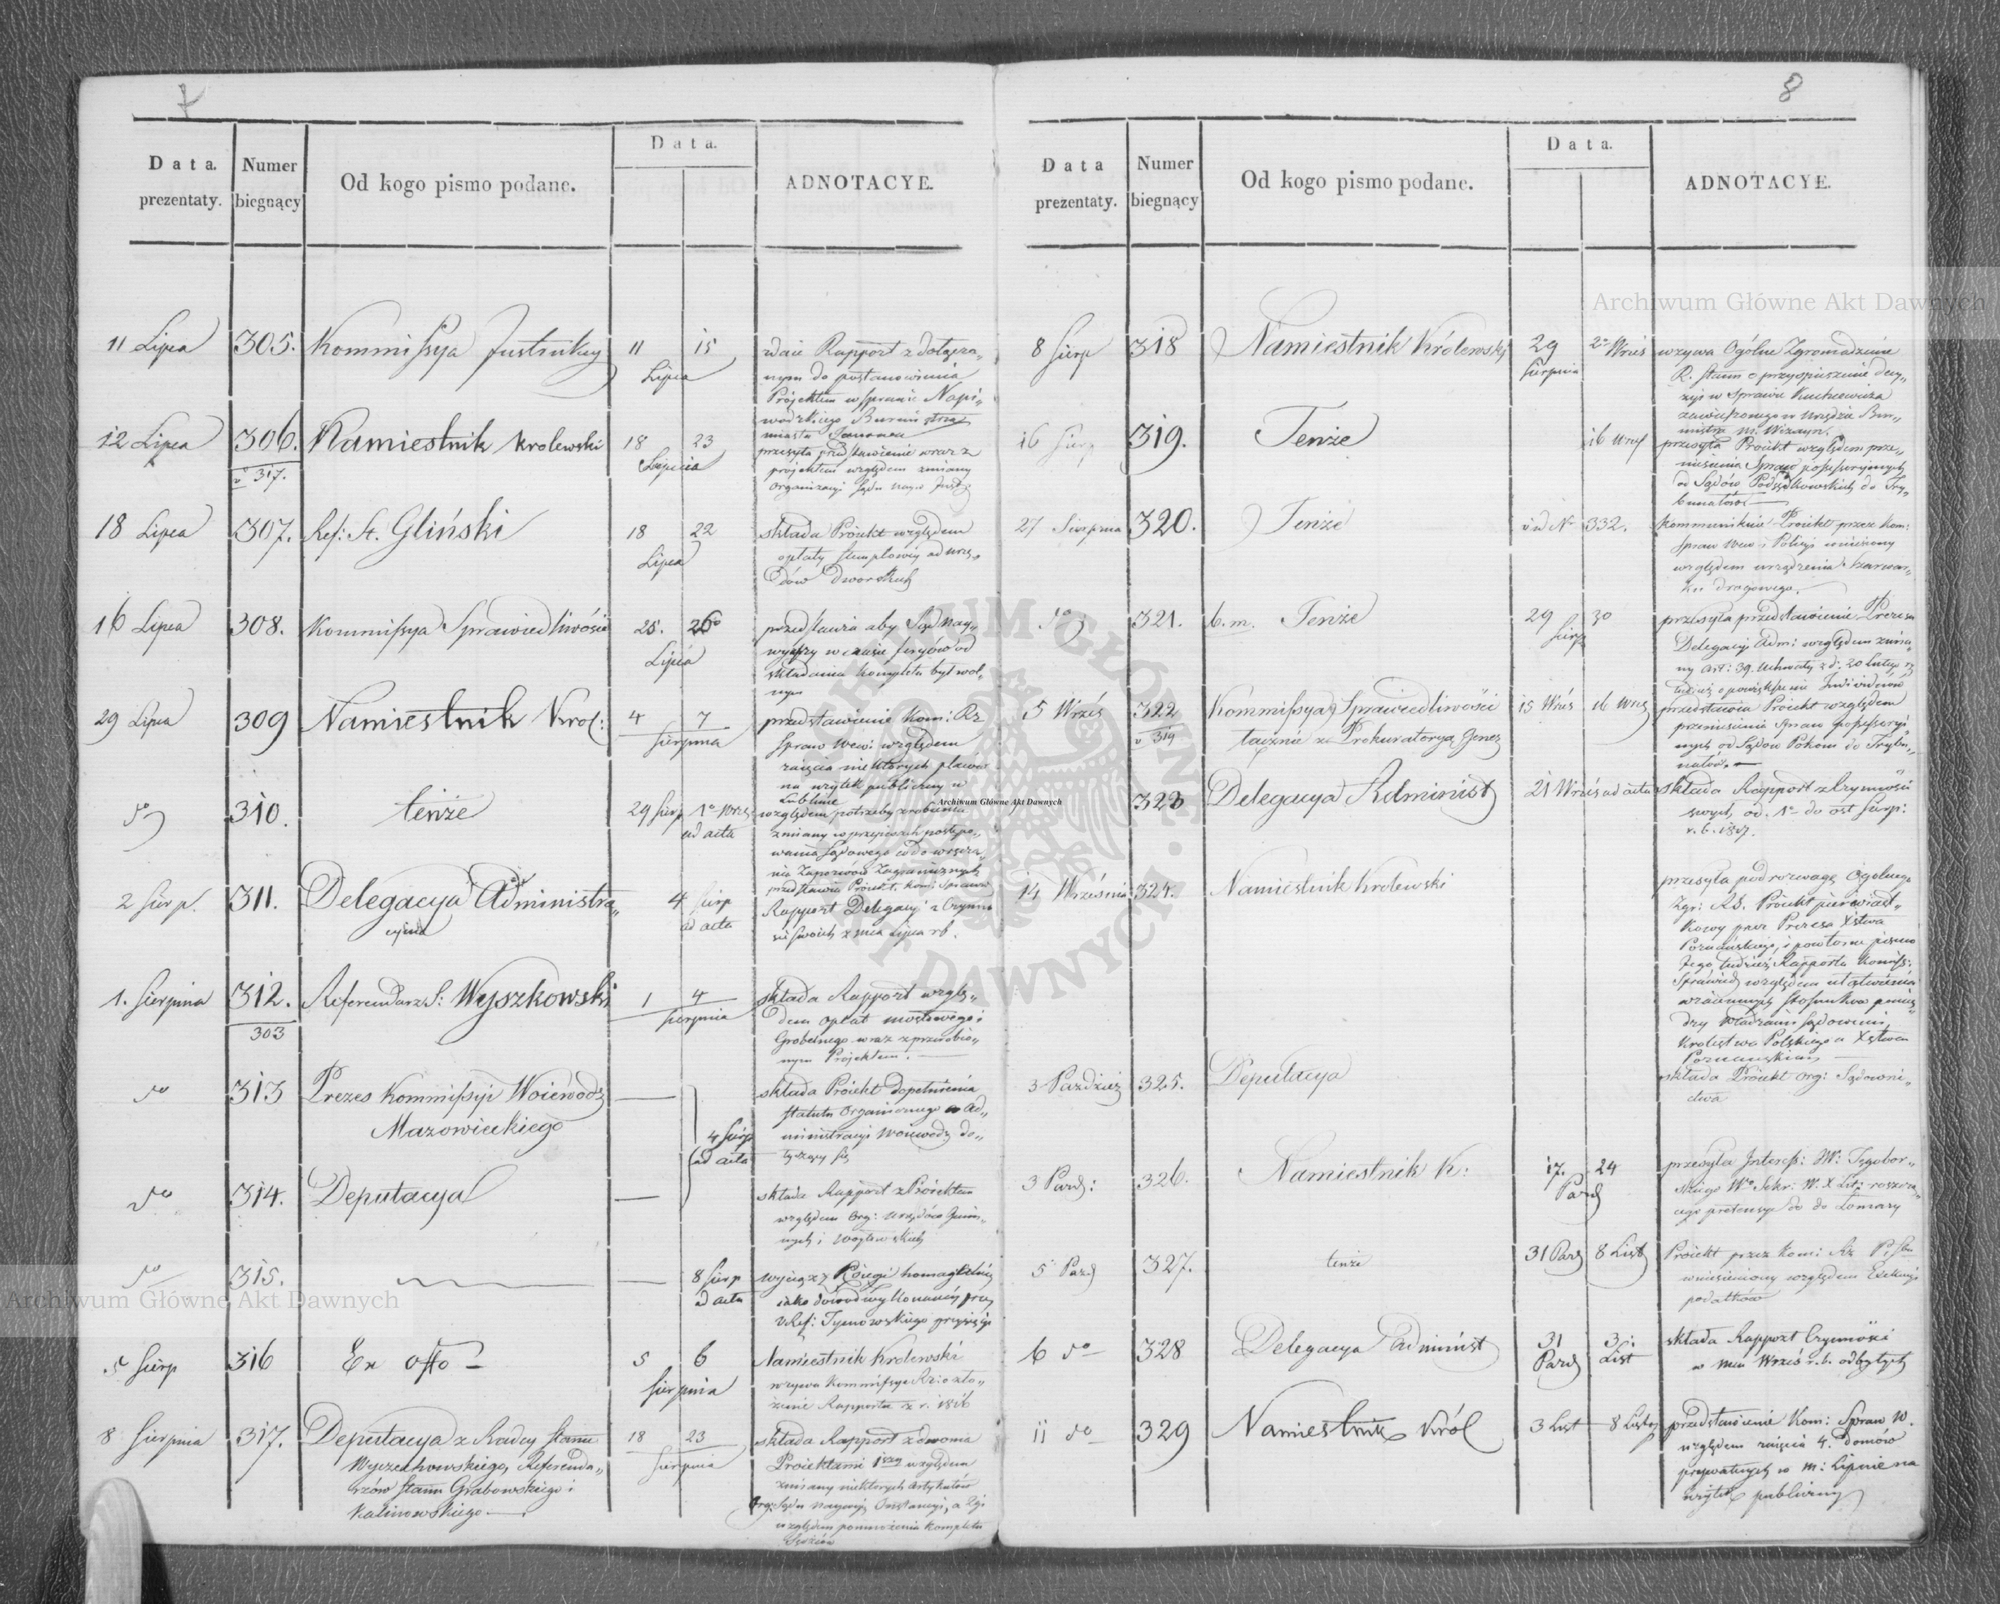 7
Data. prezentaty.
Numer biegnący
Od kogo pismo podane.
Data.
ADNOTACYE.
11 Lipca
305.
Kommissya Instrukcy
11 15
Lipca
zdaie Rapport z dołącza-
nym do postanowienia
Projektem w sprawie Napi-
wodzkiego Burmistrza
miasta
12 Lipca
306.
v 317.
Namiestnik Krolewski
18 23
Lipca
przesyła przedstawienie wraz z
projektem względem zmiany
organizacyi Sądu Najw Inst
18 Lipca
307.
Ref: St. Gliński
18 22
Lipca
składa Proiekt względem
opłaty stemplowey od urzę-
dów dworskich
16 Lipca
308.
Kommissya Sprawiedliwości
25. 26
Lipca
przedstawia aby Sąd nay-
wyższy w czasie feryów od
składania kompletu był wol-
nym
29 Lipca
309
Namiestnik Krol:
4 7
Sierpnia
przedstawienie Kom: Rz
Spraw Wew: względem
zaięcia niektórych placów
na użytek publiczny w
Lublinie
do
310.
tenże
29 Sierp 1o Wrześ
ad acta
względem potrzeby zrobienia
zmiany w przepisach postępo-
wania Sądowego co do wręcza-
nia Zapozwów Zagranicznych
przedstawia Proiekt. Kom: Sprawie
2 Sierp.
311.
Delegacya Administra-
cyina
4 Sierp
ad acta
Rapport Delegacyi z Czynno
ści swoich z mca Lipca rb.
1. Sierpnia
312.
303
Referendarz S: Wyszkowski
1 4
Sierpnia
składa Rapport wzglę-
dem opłat mostowego i
Grobelnego wraz z przerobio-
nym Projektem.
do
313
Prezes Kommissyi Woiewodz
Mazowieckiego
4 Sierp
ad acta
składa Proiekt dopełnienia
statutu Organicznego o Ad-
ministracyi Woiewodz do-
tyczący się
do
314.
Deputacya
składa Rapport z Proiektem
względem Org: Urzędów Gmin-
nych i Woytowskich
do
315.
8 Sierp
ad acta
wyciąg z Xsięgi homagialney
iako dowod wykonaney przez
Ref: Tymowskiego przysięgi
5 Sierp
316
Ex offo
5 6
Sierpnia
Namiestnik Krolewski
wzywa Kommissye Rz: o zło-
żenie Rapportu z r. 1816
8 Sierpnia
317.
Deputacya z Radcy Stanu
Wyczechowskiego, Referenda-
rzów Stanu Grabowskiego i
Kalinowskiego
18 23
Sierpnia
składa Rapport z dwoma
Proiektami 1szy względem
zmiany niektórych Artykułów
Org: Sądu naywyż Instancyi, a 2gi
względem pomnożenia kompletu
Sędziów
8
Data prezentaty.
Numer biegnący
Od kogo pismo podane.
Data.
ADNOTACYE.
8 Sierp
318
Namiestnik Królewski
29 2o Wrześ
Sierpnia
wzywa Ogólne Zgromadzenie
R. Stanu o przyspieszenie decy-
zyi w Sprawie Kuchcewicza
zawieszonego w urzędzie Bur-
mistrza m. Wizayn.
16 Sierp
319.
Tenże
16 Wrześ
przesyła Proiekt względem prze-
niesienia Spraw possessoryinych
od Sądów Podsędkowskich do Try-
bunałów
27 Sierpnia
320.
Tenże
vid No 332.
Kommunikuie Proiekt przez Kom:
Spraw Wew: i Policyi wniesiony
względem urządzenia szarwar-
ku drogowego.
do
321.
b. m. Tenże
29 30
Sierp
przesyła przedstawienie Prezesa
Delegacyi Adm: względem zmia-
ny Art: 39. Uchwały z d. 20 Lutego rz
tudzież o powiększenie Individuów
5 Wrześ
322
v 319
Kommissya Sprawiedliwości
łącznie z Prokuratoryą Gener
15 Wrześ 16 Wrześ
przedstawia Proiekt względem
przeniesienia Spraw possessoryi-
nych od Sądów Pokoiu do Trybu-
nałów.
323
Delegacya Administ
21 Wrześ ad acta
składa Rapport z Czynności
swych od 1o do ost Sierp:
r. b. 1817.
14 Września
324.
Namiestnik Krolewski
przesyła pod rozwagę Ogolnego
Zgr: RS. Proiekt pierwiast-
kowy przez Prezesa Xięstwa
Poznańskiego, i powtorne pismo
Jego tudzież Rapporta Kommiss:
Sprawied względem ułatwienia
wzaiemnych stosunków pomię-
dzy Władzami Sądowemi
Krolestwa Polskiego a Xięstwem
Poznańskiem
3 Paździer
325.
Deputacya
składa Proiekt Org: Sądowni-
ctwa
3 Pazd:
326.
Namiestnik K:
17. 24
Pazd
5 Pazd
327.
tenże
31 Pazd 8 List
Proiekt przez Kom: Rz P: Skar
wniesiony względem Exekucyi
podatków
6 do
328
Delegacya Administ
31 3
Pazd List
składa Rapport Czynności
w mcu Wrześ r. b. odbytych
11 do
329
Namiestnik Król
3 List 8 List
przedstawienie Kom: Spraw W.
względem zaięcia 4. domów
prywatnych w m: Lipnie na
użytek publiczny
Archiwum Główne Akt Dawnych
Archiwum Główne Akt Dawnych
Archiwum Główne Akt Dawnych
ARCHIWUM GŁÓWNE AKT DAWNYCH